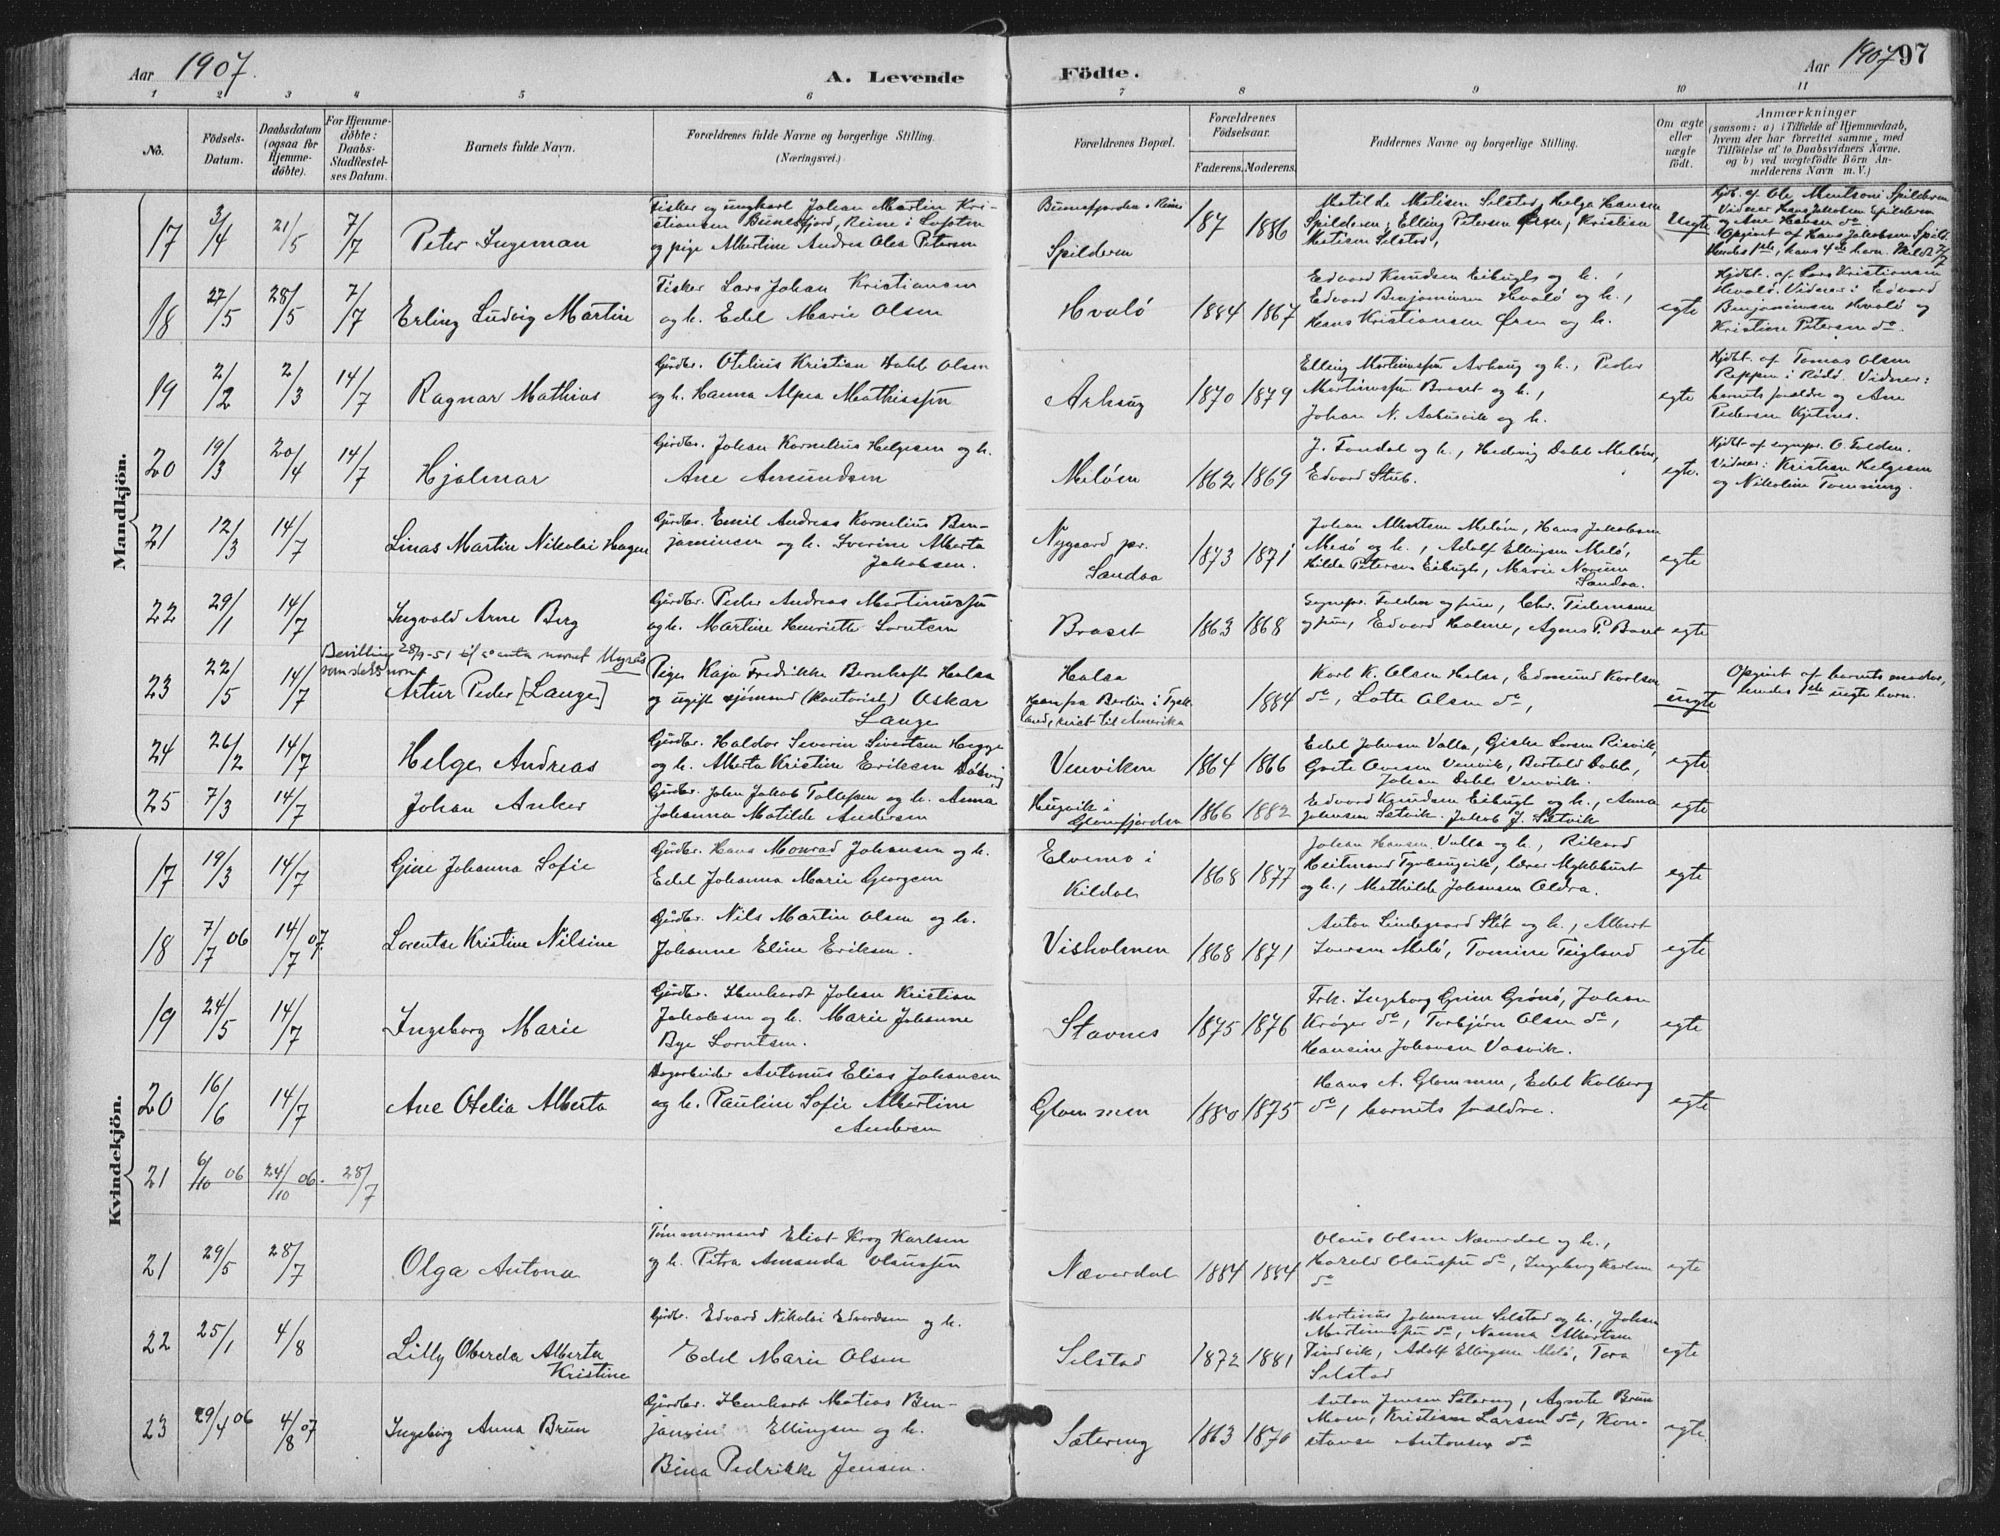 Aar 1907.
A. Levende Födte.
Aar 1907 97
1 2 3 4 5 6 7 8 9 10 11
No.
Födsels-
Datum.
Daabsdatum
(ogsaa for
Hjemme-
döbte).
For Hjemme-
döbte:
Daabs-
Stadfæstel-
ses Datum.
Barnets fulde Navn.
Forældrenes fulde Navne og borgerlige Stilling.
(Næringsvei.)
Forældrenes Bopæl.
Forældrenes
Födselsaar.
Faderens. Moderens.
Faddernes Navne og borgerlige Stilling.
Om ægte
eller
uægte
födt.
Anmærkninger
(saasom: a) i Tilfælde af Hjemmedaab,
hvem der har forrettet samme, med
Tilföielse af to Daabsvidners Navne,
og b) ved uægtefödte Börn An-
melderens Navn m. V.)
Mandkjön.
17 3/4 21/5 7/7 Peter Ingeman
Fisker og ungkarl Johan Martin Kri-
stiansen Bunesfjord, Reine i Lofoten
og pige Albertine Andrea Olea Petersen
Bunesfjorden i Reine
Spilderen
187 1886
Matilde Matisen Selstad, Helge Hansen
Spilderen, Elling Petersen Øren, Kristian
Matisen Selstad,
uegte
Hjdt. af Ole Spilderen
Vidner Hans Jakobsen Spilderen
og Ane Hansen do
Opgivet af Hans Jakobsen Spild.
Hendes 1ste, hans 4de barn. Meldt 7/7
18 27/5 28/5 7/7 Erling Ludvig Martin
Fisker Lars Johan Kristiansen
og h. Edel Marie Olsen
Hvalö
1884 1867
Edvard Knudsen Eibugt og h.,
Edvard Benjaminsen Hvalø og h.,
Hans Kristiansen Øren og h.
egte
Hjdt. af Lars Kristiansen
Hvalö. Vidner: Edvard
Benjaminsen Hvalö og
Kristine Petersen do.
19 2/2 2/3 14/7 Ragnar Mathias
Gårdbr. Otelius Kristian Dahl Olsen
og h. Hanna Alpea Mathissen
Arhaug
1870 1879
Elling Martinussen Arhaug og h., Peder
Martinussen Braset og h.,
Johan N. Aahusvik og h.
egte
Hjdt. af Tomas Olsen
Reppen i Rödö. Vidner:
barnets foreldre og Ane
Pedersen Kjelnes.
20 19/3 20/4 14/7 Hjalmar
Gårdbr. Johan Kornelius Helgesen og h.
Ane Amundsen
Melöen
1862 1869
J. Fondal og h., Hedvig Dahl Melöen,
Edvard Stub.
egte.
Hjdt. af sognepr. O. Falden.
Vidner: Kristian Helgesen
og Nikoline Tomning.
21 12/3 14/7 Linas Martin Nikolai Hagen
Gårdbr. Emil Andreas Kornelius Ben-
jaminsen og h. Iverine Alberta
Jakobsen.
Nygaard pr.
Sandaa
1873 1871
Johan Albertsen Melöen, Hans Jakobsen
Mesö og h., Adolf Ellingsen Melö,
Hilda Petersen Eibugt, Marie Novum
Sandaa.
egte
22 29/1 14/7 Ingvald Arne Berg
Gårdbr. Peder Andreas Martinussen
og h. Martine Henriette Lorntsen
Braset
1863 1868
Sognepr. Falden og frue, Chr. Tidemann
og frue, Edvard Holme, Agnes P. Braset
egte
Bevilling 28/9-51 til å anta navnet Myrås
som slektsnavn
23 22/5 14/7 Artur Peder [Lange]
Pige Kaja Fredrikke Bernhofts Halsa
og ugift sjömand (kontorist) Oskar
Lange
Halsa
Han fra Berlin i Tysk-
land, reist til Amerika
1884
Karl K. Olsen Halsa, Edmund Karlsen
do, Lotte Olsen do,
uegte
Opgivet af barnets moder,
hendes 1ste uegte barn.
24 26/2 14/7 Helge Andreas
Gårdbr. Haldor Severin Sivertsen Hegge
og h. Alberta Kristine Eriksen Dalsvig
Venviken
1864 1866
Edel Johnsen Valla, Giske Larsen Risvik,
Grete Ovesen Venvik, Bertold Dahl,
Johan Dahl Venvik.
egte
25 7/3 14/7 Johan Anker
Gårdbr. John Jakob Tollefsen og h. Anna
Johanna Matilde Andersen
Hugvik i
Glomfjorden
1866 1882
Edvard Knudsen Eibugt og h., Anna
Johnsen Setvik. Jakob J. Setvik
egte
Kvindekjön.
17 19/3 14/7 Gine Johanna Sofie
Gårdbr. Hans Monrad Johansen og h.
Edel Johanna Marie Georgsen
Elvemo i
Kildal
1868 1877
Johan Hansen Valla og h., Rikard
Heitmand, lærer Myklebust
og h., Mathilde Johansen Aldra.
egte
18 7/7 06 14/7 07 Lorentse Kristine Nilsine
Gårdbr. Nils Martin Olsen og h.
Johanne Eline Eriksen.
Visholmen
1868 1871
Anton Lindegaard Støt og h., Albert
Iversen Melö, Tomine Teigland
egte
19 24/5 14/7 Ingeborg Marie
Gårdbr. Henhardt Johan Kristian
Jakobsen og h. Marie Johanne
Bye Lorntsen.
Stavnes
1875 1876
Frk. Ingeborg Grien Grönö, Johan
Kröger do, Torbjörn Olsen do,
Hansine Johansen Vasvik.
egte
20 16/6 14/7 Ane Otelia Alberta
Dagarbeider Antonus Elias Johansen
og h. Pauline Sofie Albertine
Andersen
Glommen
1880 1875
Hans A. Glommen, Edel Kolberg
do, barnets foreldre.
egte
21 6/10 06 24/10 06. 28/7
21 29/5 28/7 Olga Antona
Tömmermand Eliot Krog Karlsen
og h. Petra Amanda Olaussen
Næverdal
1884 1884
Olaus Olsen Næverdal og h.,
Harald Olaussen do, Ingeborg Karlsen
do
egte
22 25/1 4/8 Lilly Oberda Alberta
Kristine
Gårdbr. Edvard Nikolai Edvardsen og h.
Edel Marie Olsen
Selstad
1872 1881
Martinus Johansen Selstad og h., Johan
Martinussen do, Nanna Albertsen
Tindvik, Adolf Ellingsen Melö, Tora
Selstad
egte
23 29/4 06 4/8 07 Ingeborg Anna Brun
Gårdbr. Henhart Matias Ben-
jamin Ellingsen og h.
Bina Pedrikke Jensen.
Sætering
1863 1870
Anton Jensen Sætering, Agnete Brun
Moen, Kristian Larsen do, Kon-
stanse Antonsen do
egte.